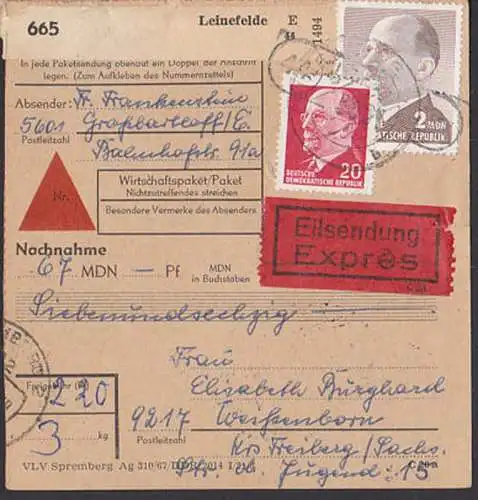 665
Leinefelde E
44
1494
In jede Paketsendung obenauf ein Doppel der Anschrift
legen. (Zum Aufkleben des Nummernzettels)
Absender: Fr. Frankenstein
5601 Großbartloff/E.
Postleitzahl
Bahnhofstr. 91a
Wirtschaftspaket/Paket
Nichtzutreffendes streichen
Besondere Vermerke des Absenders
Nr.
20
DEUTSCHE
DEMOKRATISCHE REPUBLIK
2 MDN
ATISCHE REPUBLIK
Eilsendung
Exprès
Nachnahme
67 MDN — Pf MDN
in Buchstaben
Siebenundsechzig
Frau
Elisabeth Burghard
9217 Weißenborn
Postleitzahl
Krs Freiberg/Sachs.
Str. d. Jugend 15
220
3 kg
VLV Spremberg Ag 310/67 DDR 2014